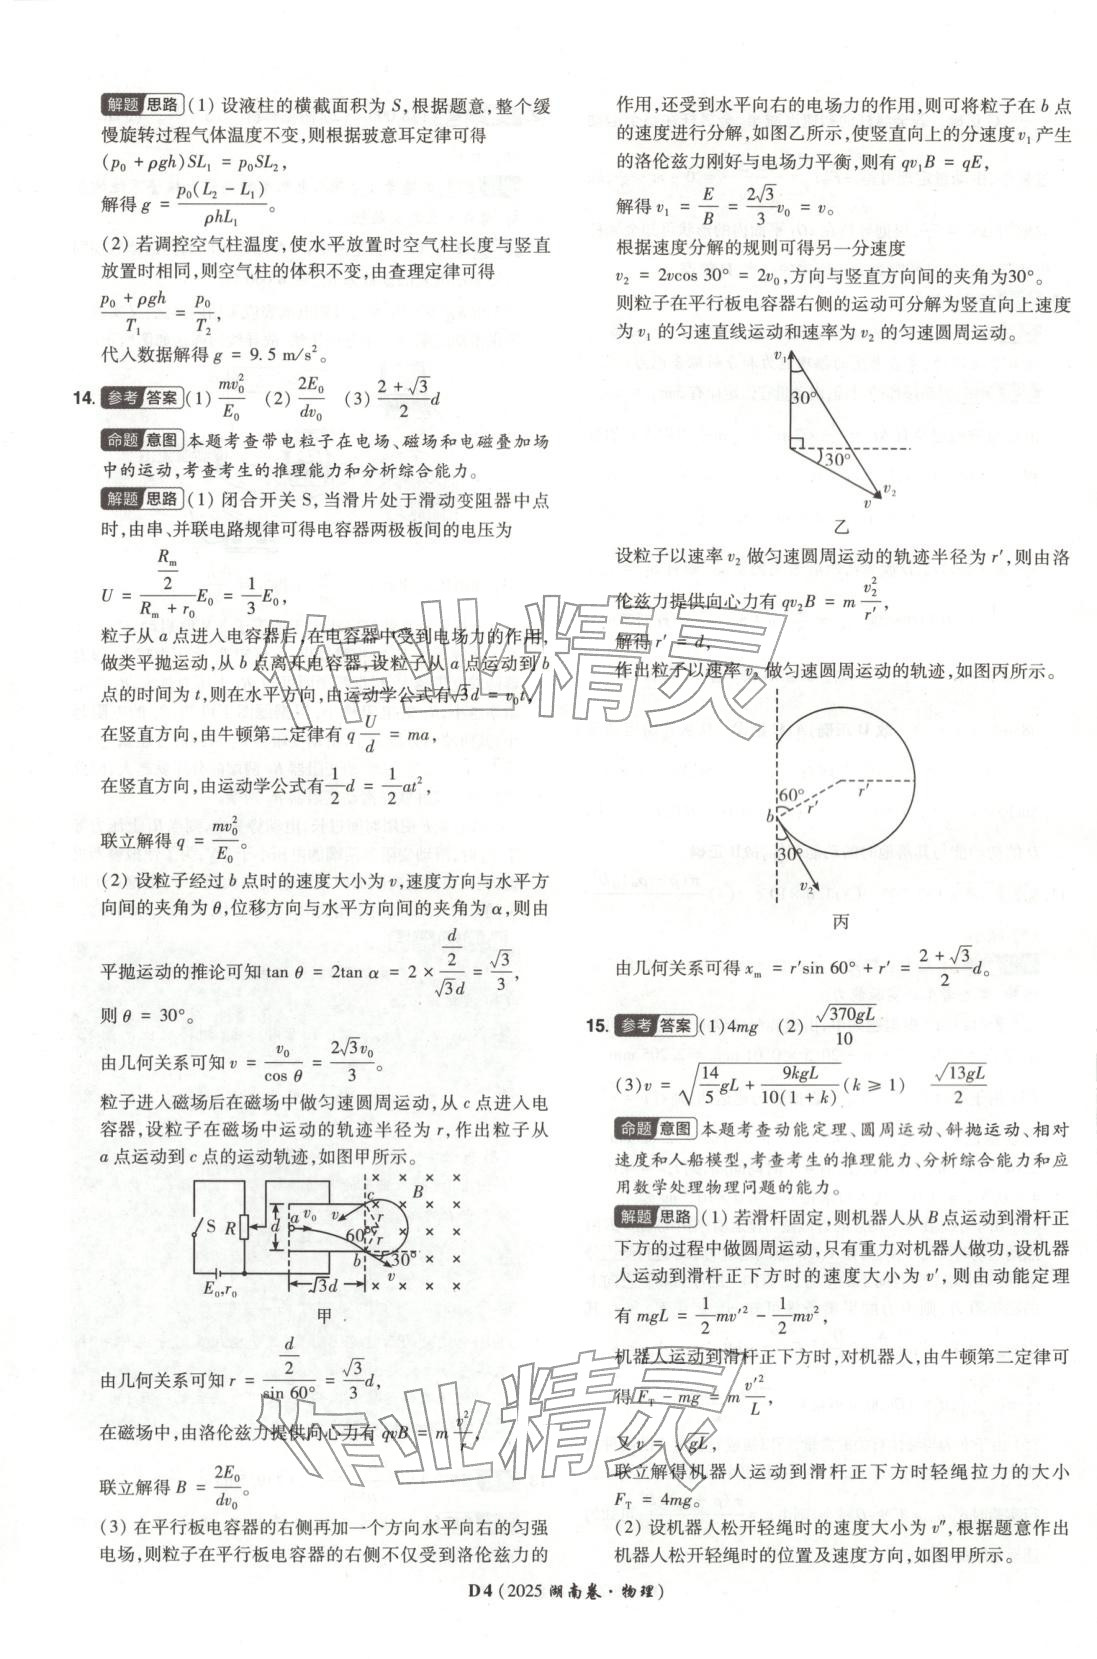 解题思路 (1) 设液柱的横截面积为 S,根据题意,整个缓
慢旋转过程气体温度不变,则根据玻意耳定律可得
(p₀ + ρgh)SL₁ = p₀SL₂,
解得 g = p₀(L₂ − L₁)/(ρhL₁)。
(2) 若调控空气柱温度,使水平放置时空气柱长度与竖直
放置时相同,则空气柱的体积不变,由查理定律可得
(p₀ + ρgh)/T₁ = p₀/T₂,
代入数据解得 g = 9.5 m/s²。
14. 参考答案 (1) mv₀²/E₀ (2) 2E₀/(dv₀) (3) (2 + √3)/2 d
命题意图 本题考查带电粒子在电场、磁场和电磁叠加场
中的运动,考查考生的推理能力和分析综合能力。
解题思路 (1) 闭合开关 S,当滑片处于滑动变阻器中点
时,由串、并联电路规律可得电容器两极板间的电压为
U = (Rₘ/2)/(Rₘ + r₀) E₀ = 1/3 E₀,
粒子从 a 点进入电容器后,在电容器中受到电场力的作用,
做类平抛运动,从 b 点离开电容器,设粒子从 a 点运动到 b
点的时间为 t,则在水平方向,由运动学公式有√3d = v₀t,
在竖直方向,由牛顿第二定律有 q U/d = ma,
在竖直方向,由运动学公式有 1/2 d = 1/2 at²,
联立解得 q = mv₀²/E₀。
(2) 设粒子经过 b 点时的速度大小为 v,速度方向与水平方
向间的夹角为 θ,位移方向与水平方向间的夹角为 α,则由
平抛运动的推论可知 tan θ = 2tan α = 2 × (d/2)/(√3d) = √3/3,
则 θ = 30°。
由几何关系可知 v = v₀/cos θ = 2√3v₀/3。
粒子进入磁场后在磁场中做匀速圆周运动,从 c 点进入电
容器,设粒子在磁场中运动的轨迹半径为 r,作出粒子从
a 点运动到 c 点的运动轨迹,如图甲所示。
S R d a v₀ v c B r r 60° b 30° v
E₀,r₀ √3d
甲
由几何关系可知 r = (d/2)/sin 60° = √3/3 d,
在磁场中,由洛伦兹力提供向心力有 qvB = m v²/r,
联立解得 B = 2E₀/(dv₀)。
(3) 在平行板电容器的右侧再加一个方向水平向右的匀强
电场,则粒子在平行板电容器的右侧不仅受到洛伦兹力的
作用,还受到水平向右的电场力的作用,则可将粒子在 b 点
的速度进行分解,如图乙所示,使竖直向上的分速度 v₁ 产生
的洛伦兹力刚好与电场力平衡,则有 qv₁B = qE,
解得 v₁ = E/B = 2√3/3 v₀ = v。
根据速度分解的规则可得另一分速度
v₂ = 2vcos 30° = 2v₀,方向与竖直方向间的夹角为30°。
则粒子在平行板电容器右侧的运动可分解为竖直向上速度
为 v₁ 的匀速直线运动和速率为 v₂ 的匀速圆周运动。
v₁
30°
30°
v v₂
乙
设粒子以速率 v₂ 做匀速圆周运动的轨迹半径为 r′,则由洛
伦兹力提供向心力有 qv₂B = m v₂²/r′,
解得 r′ = d,
作出粒子以速率 v₂ 做匀速圆周运动的轨迹,如图丙所示。
60° r′ r′
b
30°
v₂
丙
由几何关系可得 xₘ = r′sin 60° + r′ = (2 + √3)/2 d。
15. 参考答案 (1)4mg (2) √(370gL)/10
(3)v = √(14/5 gL + 9kgL/(10(1 + k))) (k ≥ 1) √(13gL)/2
命题意图 本题考查动能定理、圆周运动、斜抛运动、相对
速度和人船模型,考查考生的推理能力、分析综合能力和应
用数学处理物理问题的能力。
解题思路 (1) 若滑杆固定,则机器人从 B 点运动到滑杆正
下方的过程中做圆周运动,只有重力对机器人做功,设机器
人运动到滑杆正下方时的速度大小为 v′,则由动能定理
有 mgL = 1/2 mv′² − 1/2 mv²,
机器人运动到滑杆正下方时,对机器人,由牛顿第二定律可
得 F_T − mg = m v′²/L,
又 v = √(gL),
联立解得机器人运动到滑杆正下方时轻绳拉力的大小
F_T = 4mg。
(2) 设机器人松开轻绳时的速度大小为 v″,根据题意作出
机器人松开轻绳时的位置及速度方向,如图甲所示。
D4(2025 湖南卷·物理)
作业精灵
作业精灵